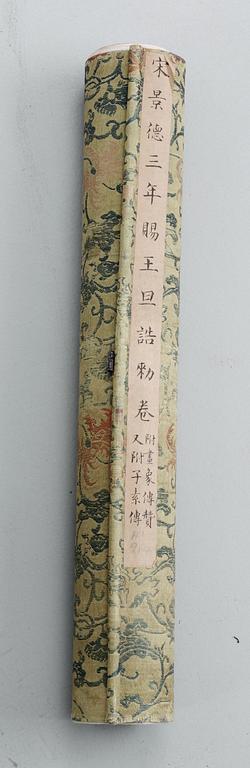 宋景德三年賜王旦誥勅卷
附畫象傳贊
又附子素傳